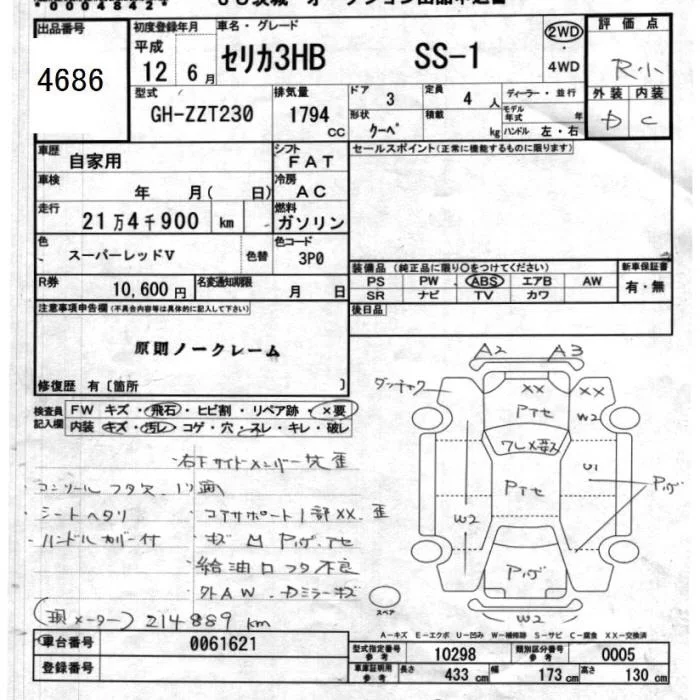 *00048424*
出品番号
4686
初度登録年月
平成
12 6月
車名・グレード
セリカ3HB SS-1
2WD
・
4WD
評価点
R小
外装 内装
D C
型式
GH-ZZT230
排気量
1794 CC
ドア 3
定員 4 人
形状 クーペ
積載 kg
ディーラー・並行
モデル年式 年
ハンドル 左・右
車歴
自家用
シフト
FAT
車検
年 月( 日)
冷房
AC
走行
21万4千900 km
燃料
ガソリン
色
スーパーレッドV
色替
色コード
3P0
R券
10,600 円
名変通知期限
月 日
セールスポイント(正常に機能するものに限ります)
装備品 (純正品に限り○をつけてください)
PS PW ABS エアB AW
SR ナビ TV カワ
新車保証書
有・無
後日品
注意事項申告欄(不具合内容等は具体的に記入して下さい)
原則ノークレーム
修復歴 有〔箇所 〕
検査員
記入欄
FW キズ・飛石・ヒビ割・リペア跡・×要
内装 キズ・汚レ・コゲ・穴・スレ・キレ・破レ
・右下サイドメンバー先 歪
・コンソールフタ欠
・シートヘタリ
・コアサポート1部XX. 歪
・ハンドルカバー付
・給油口フタ不良
・外AW.
(現メーター) 214889 km
A2 A3
XX
XX
W2
Pアセ
W2
U1
Pアセ
W2
スペア
A-キズ E-エクボ U-凹み W-補修跡 S-サビ C-腐食 XX-交換済
車台番号 0061621
登録番号
型式指定番号 参考 10298
類別区分番号 参考 0005
車庫証明用 参考 長さ 433 cm 幅 173 cm 高さ 130 cm